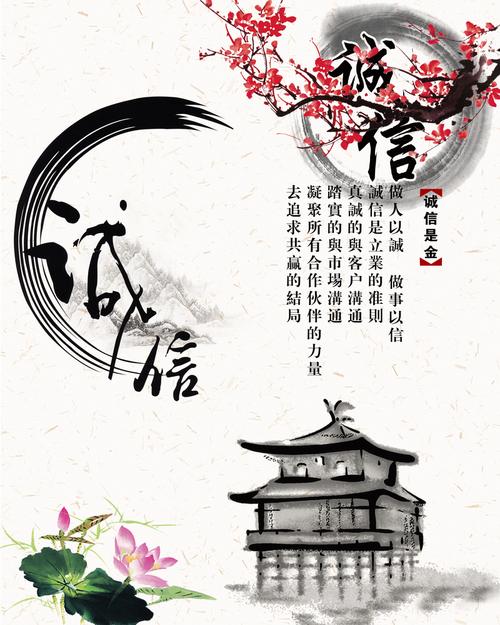 誠信
【诚信是金】
做人以誠 做事以信
誠信是立業的准則
真誠的與客户溝通
踏實的與市場溝通
凝聚所有合作伙伴的力量
去追求共贏的結局
诚信